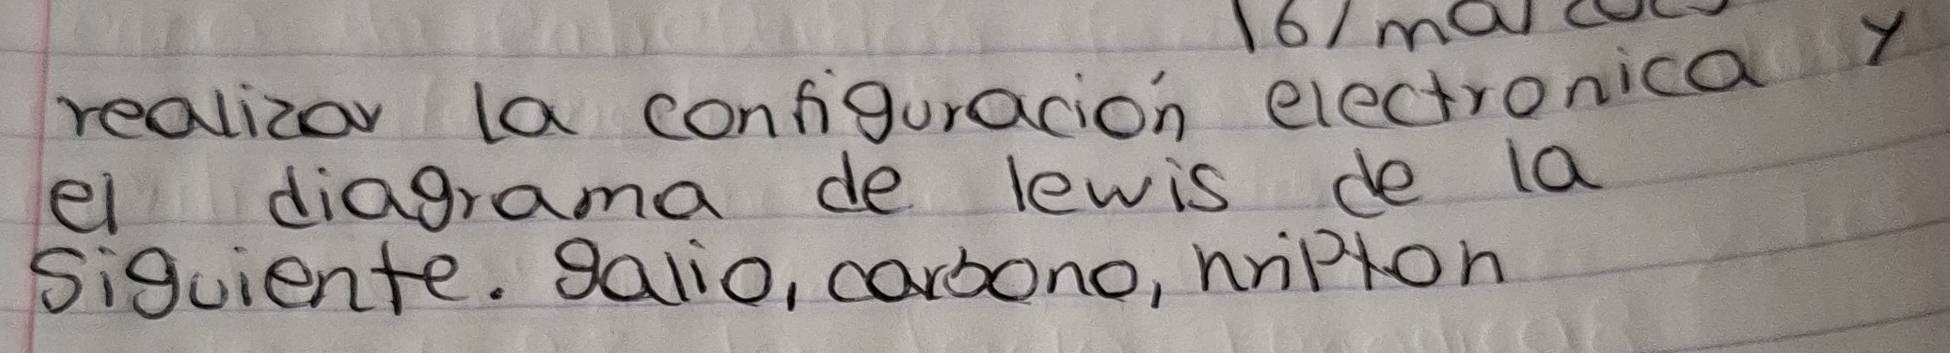 16/marcoles
realizar la configuración electronica y
el diagrama de lewis de la
siguiente. galio, carbono, kripton